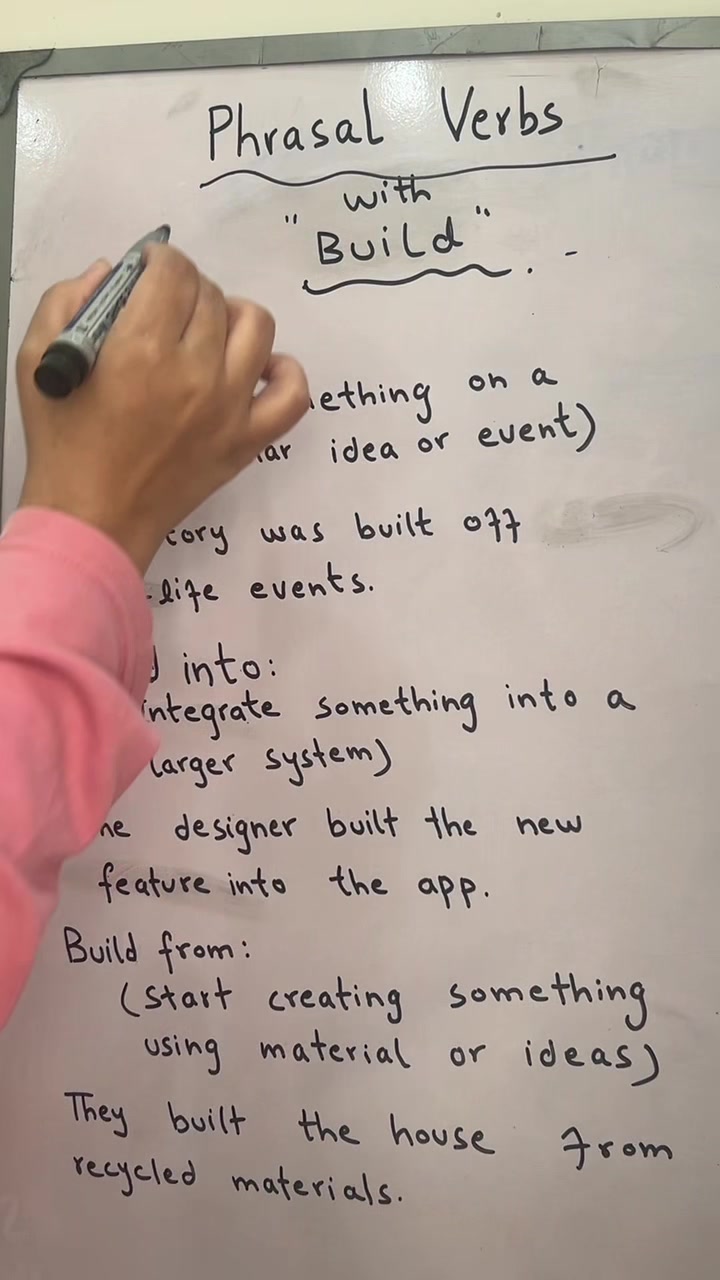 Phrasal Verbs
with
"Build".-
on a
idea or event)
was built off
life events.
into:
integrate something into a
larger system)
designer built the new
feature into the app.
Build from:
(start creating something
using material or ideas)
They built the house from
recycled materials.